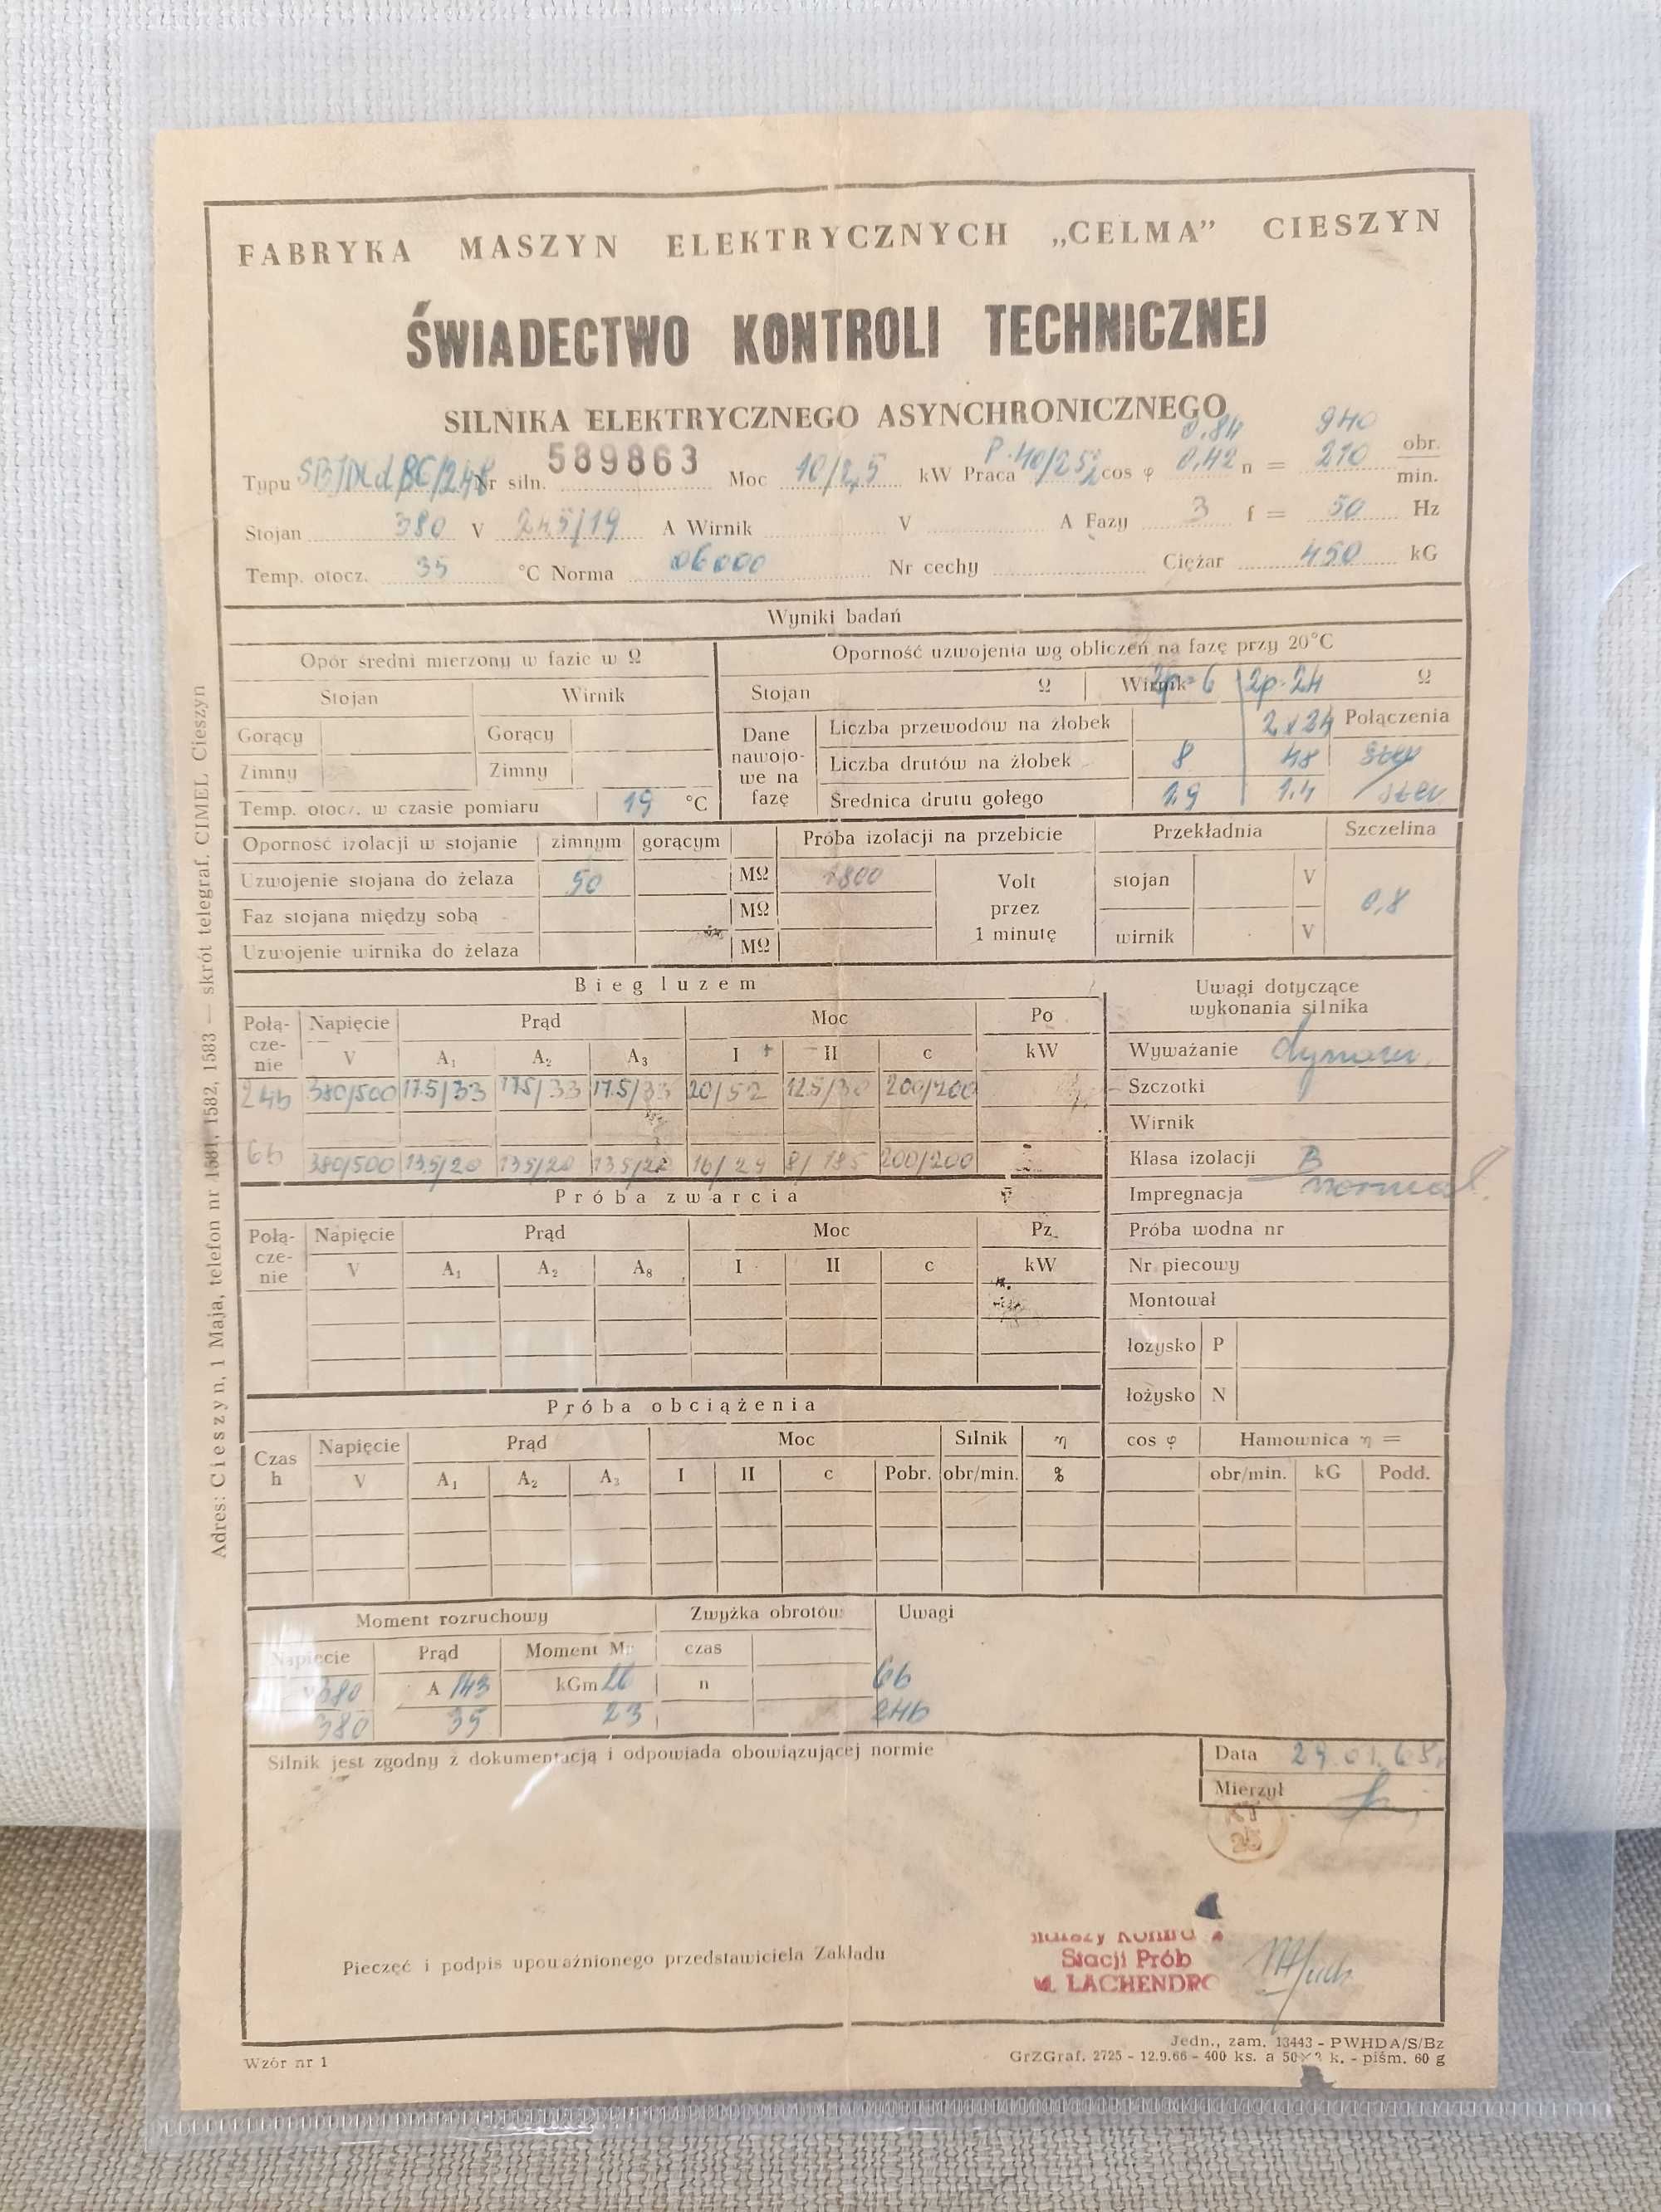 FABRYKA MASZYN ELEKTRYCZNYCH „CELMA” CIESZYN
ŚWIADECTWO KONTROLI TECHNICZNEJ
SILNIKA ELEKTRYCZNEGO ASYNCHRONICZNEGO
0,84 940
Typu Nr siln. 589863 Moc 10/2,5 kW Praca cos φ 0,42 n = 210 obr. min.
Stojan 380 V 24,5/19 A Wirnik V A Fazy 3 f = 50 Hz
Temp. otocz. 35 °C Norma 06000 Nr cechy Ciężar 450 kG
Wyniki badań
Opór średni mierzony w fazie w Ω Oporność uzwojenia wg obliczeń na fazę przy 20°C
Stojan Wirnik Stojan Ω Wirnik 2p=6 2p=24 Ω
Gorący Gorący Dane nawojowe na fazę Liczba przewodów na żłobek 2x24 Połączenia
Zimny Zimny Liczba drutów na żłobek 8 48
Temp. otocz. w czasie pomiaru 19 °C Średnica drutu gołego 1,9 1,4
Oporność izolacji w stojanie zimnym gorącym Próba izolacji na przebicie Przekładnia Szczelina
Uzwojenie stojana do żelaza 50 MΩ 1800 Volt stojan V 0,8
Faz stojana między sobą MΩ przez
Uzwojenie wirnika do żelaza MΩ 1 minutę wirnik V
Bieg luzem Uwagi dotyczące
wykonania silnika
Połą-cze-nie Napięcie Prąd Moc Po
V A1 A2 A3 I II c kW Wyważanie dynam.
24b 380/500 17.5/33 17.5/33 17.5/33 20/52 12.5/30 200/200 Szczotki
Wirnik
6b 380/500 13,5/20 13,5/20 13,5/22 16/29 8/18,5 200/200 Klasa izolacji B
Próba zwarcia Impregnacja normal.
Połą-cze-nie Napięcie Prąd Moc Pz Próba wodna nr
V A1 A2 A8 I II c kW Nr piecowy
Montował
łożysko P
łożysko N
Próba obciążenia
Czas h Napięcie Prąd Moc Silnik η cos φ Hamownica η =
V A1 A2 A3 I II c Pobr. obr/min. % obr/min. kG Podd.
Moment rozruchowy Zwyżka obrotów Uwagi
Napięcie Prąd Moment Mr czas
V 380 A 143 kGm 26 n 6b
380 35 23 24b
Silnik jest zgodny z dokumentacją i odpowiada obowiązującej normie Data 29.01.68
Mierzył
Pieczęć i podpis upoważnionego przedstawiciela Zakładu
Stacji Prób
LACHENDRO
Wzór nr 1
Jedn., zam. 13443 - PWHDA/S/Bz
GrZGraf. 2725 - 12.9.66 - 400 ks. a 50 k. - piśm. 60 g
Adres: Cieszyn, 1 Maja, telefon nr 1581, 1582, 1583 — skrót telegraf. CIMEL Cieszyn